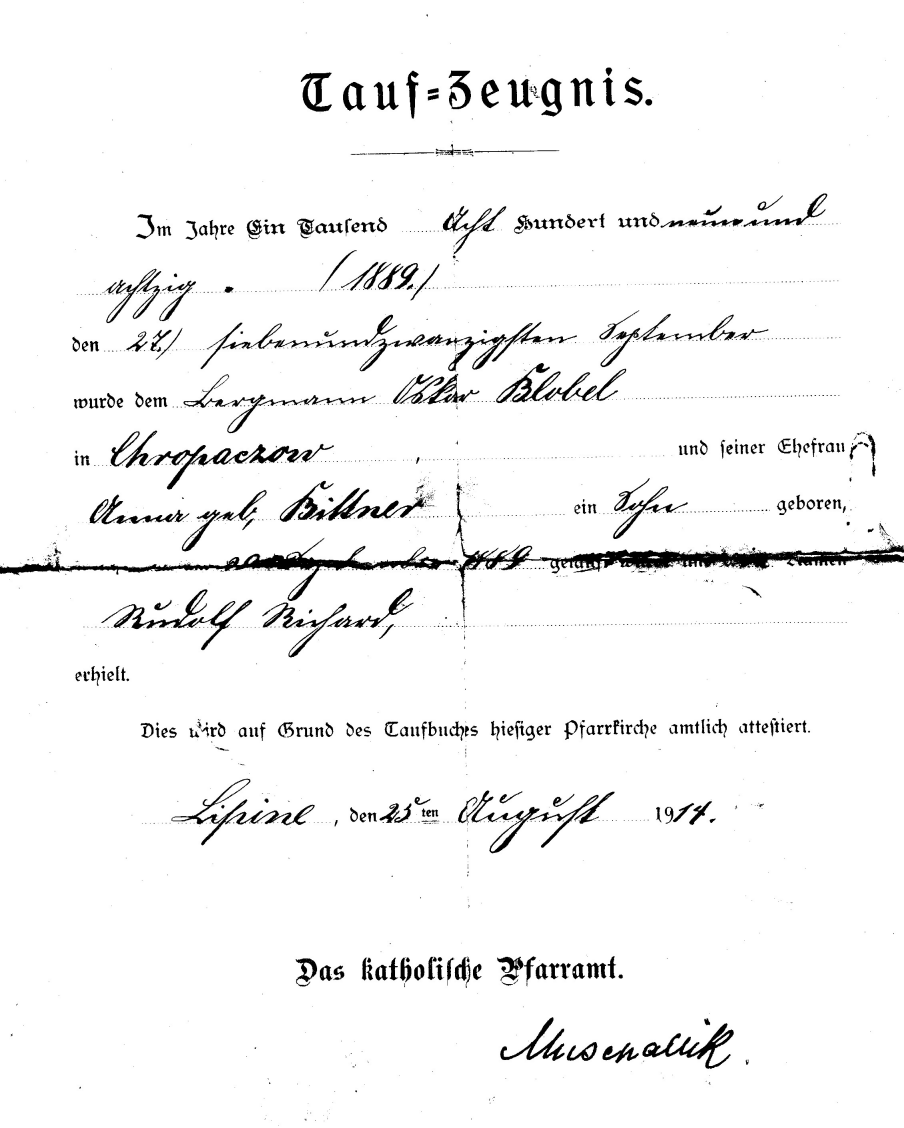 Tauf-Zeugnis.
Im Jahre Ein Tausend Acht Hundert und neunund
achtzig . (1889.)
den 27.) siebenundzwanzigsten September
wurde dem Bergmann Oskar Klobel
in Chropaczow und seiner Ehefrau
Anna geb, Bittner ein Sohn geboren,
1889 getauft wurde und Namen
Rudolf Richard,
erhielt.
Dies wird auf Grund des Taufbuches hiesiger Pfarrkirche amtlich attestiert.
Lipine, den 25ten August 1914.
Das katholische Pfarramt.